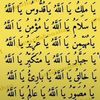 يَا مَلِكُ يَا اَللهُ يَا قُدُّوسُ يَا اَللهُ
يَا سَلَامُ يَا اَللهُ يَا مُؤْمِنُ يَا اَللهُ
يَا مُهَيْمِنُ يَا اَللهُ يَا عَزِيْزُ يَا اَللهُ
يَا جَبَّارُ يَا اَللهُ يَا مُتَكَبِّرُ يَا اَللهُ
يَا خَالِقُ يَا اَللهُ يَا بَارِئُ يَا اَللهُ
يَا مُصَوِّرُ يَا اَللهُ يَا